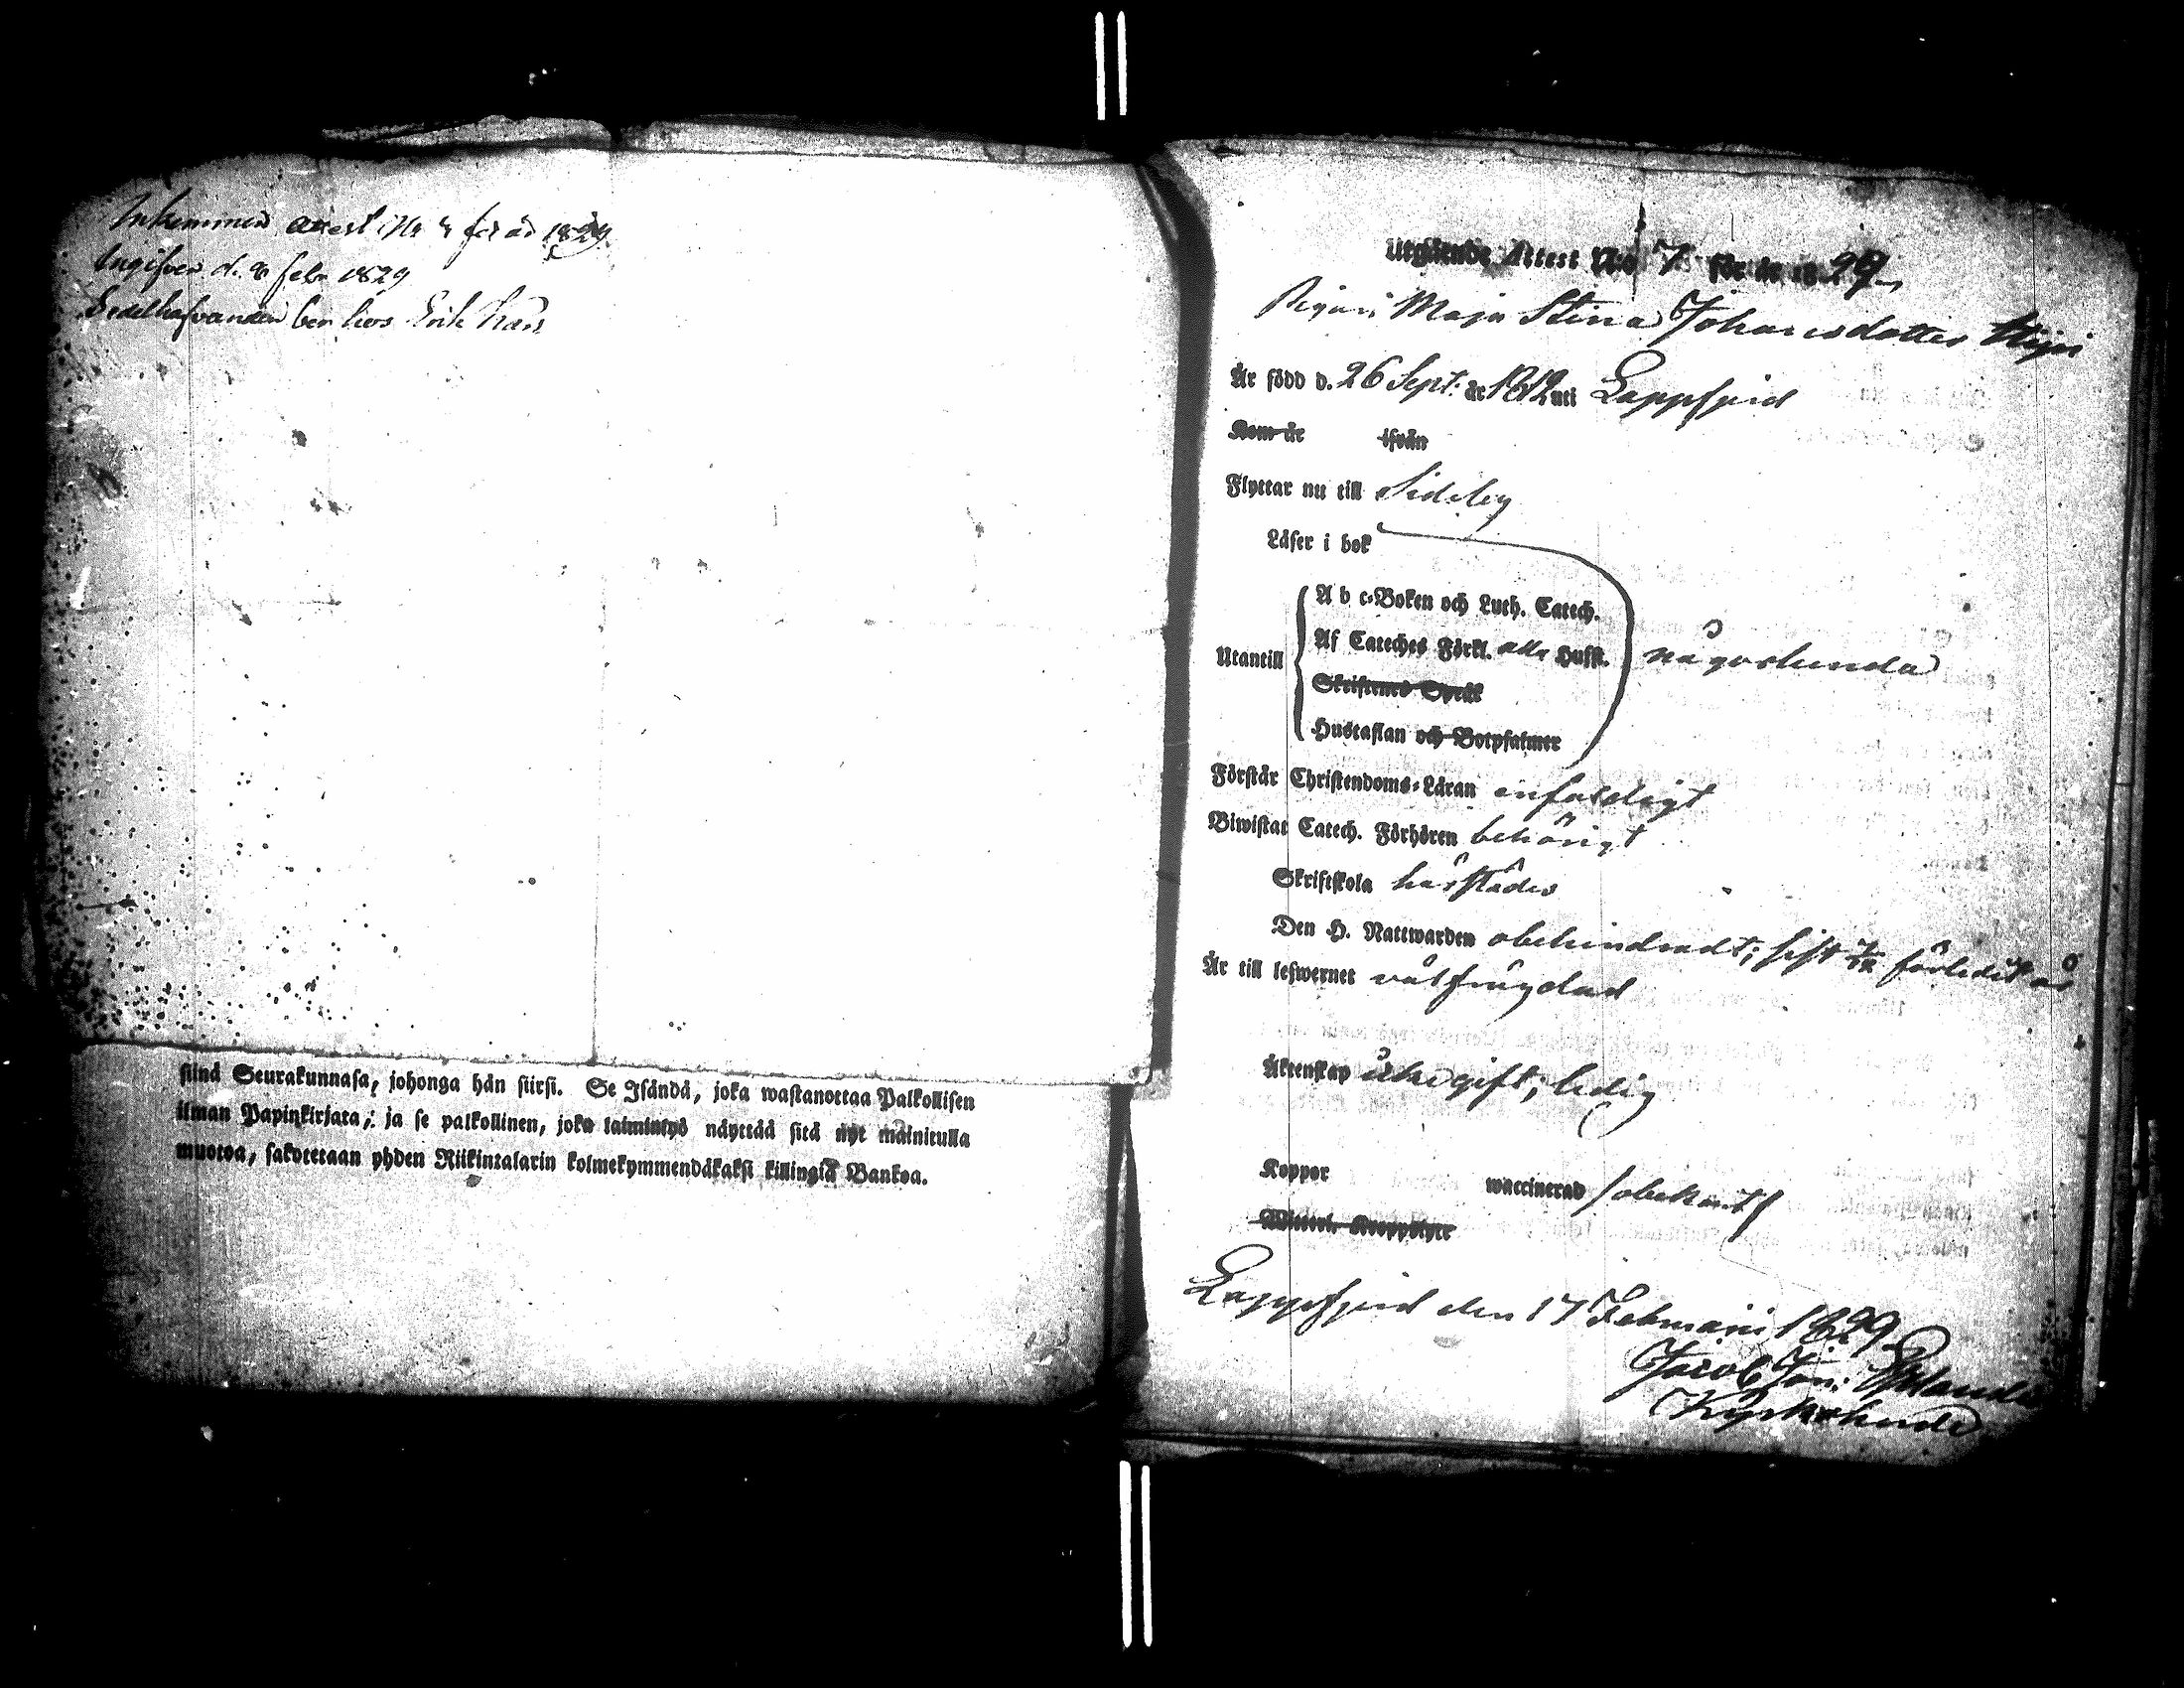 Inkommen attest No 4 för år 1829
Ingifven d. 8 febr 1829
ben hors Erik Hans
siinä Seurakunnasa, johonga hän siirsi. Se Isändä, joka wastanottaa Palkollisen
ilman Papinkirjata; ja se palkollinen, joka laiminlyö näyttää sitä nyt mainitulla
muotoa, sakotetaan yhden Riikintalarin kolmekymmendäkaksi killingiä Bankoa.
Utgående Attest N:o 7 för år 1829
Pigan Maja Stina Johansdotter
Är född d. 26 Sept. år 1812 uti Lappfjerd
Kom år ifrån
Flyttar nu till Sideby
Läser i bok
Utantill
A b c-Boken och Luth. Catech.
Af Cateches Förkl. alla Hufst.
Skriftenes Språk
Hustaflan och Botpsalmer
någorlunda
Förstår Christendoms-Läran enfaldigt
Biwistat Catech. Förhören behörigt
Skriftskola härstädes
Den H. Nattwarden obehindradt; sist förledit år
Är till lefwernet välfrägdad
Äktenskap icke gift; ledig
Koppor waccinerad /obekant/
Lappfjerd den 17 Februarii 1829
Jacob Joh:
Kyrkoherde